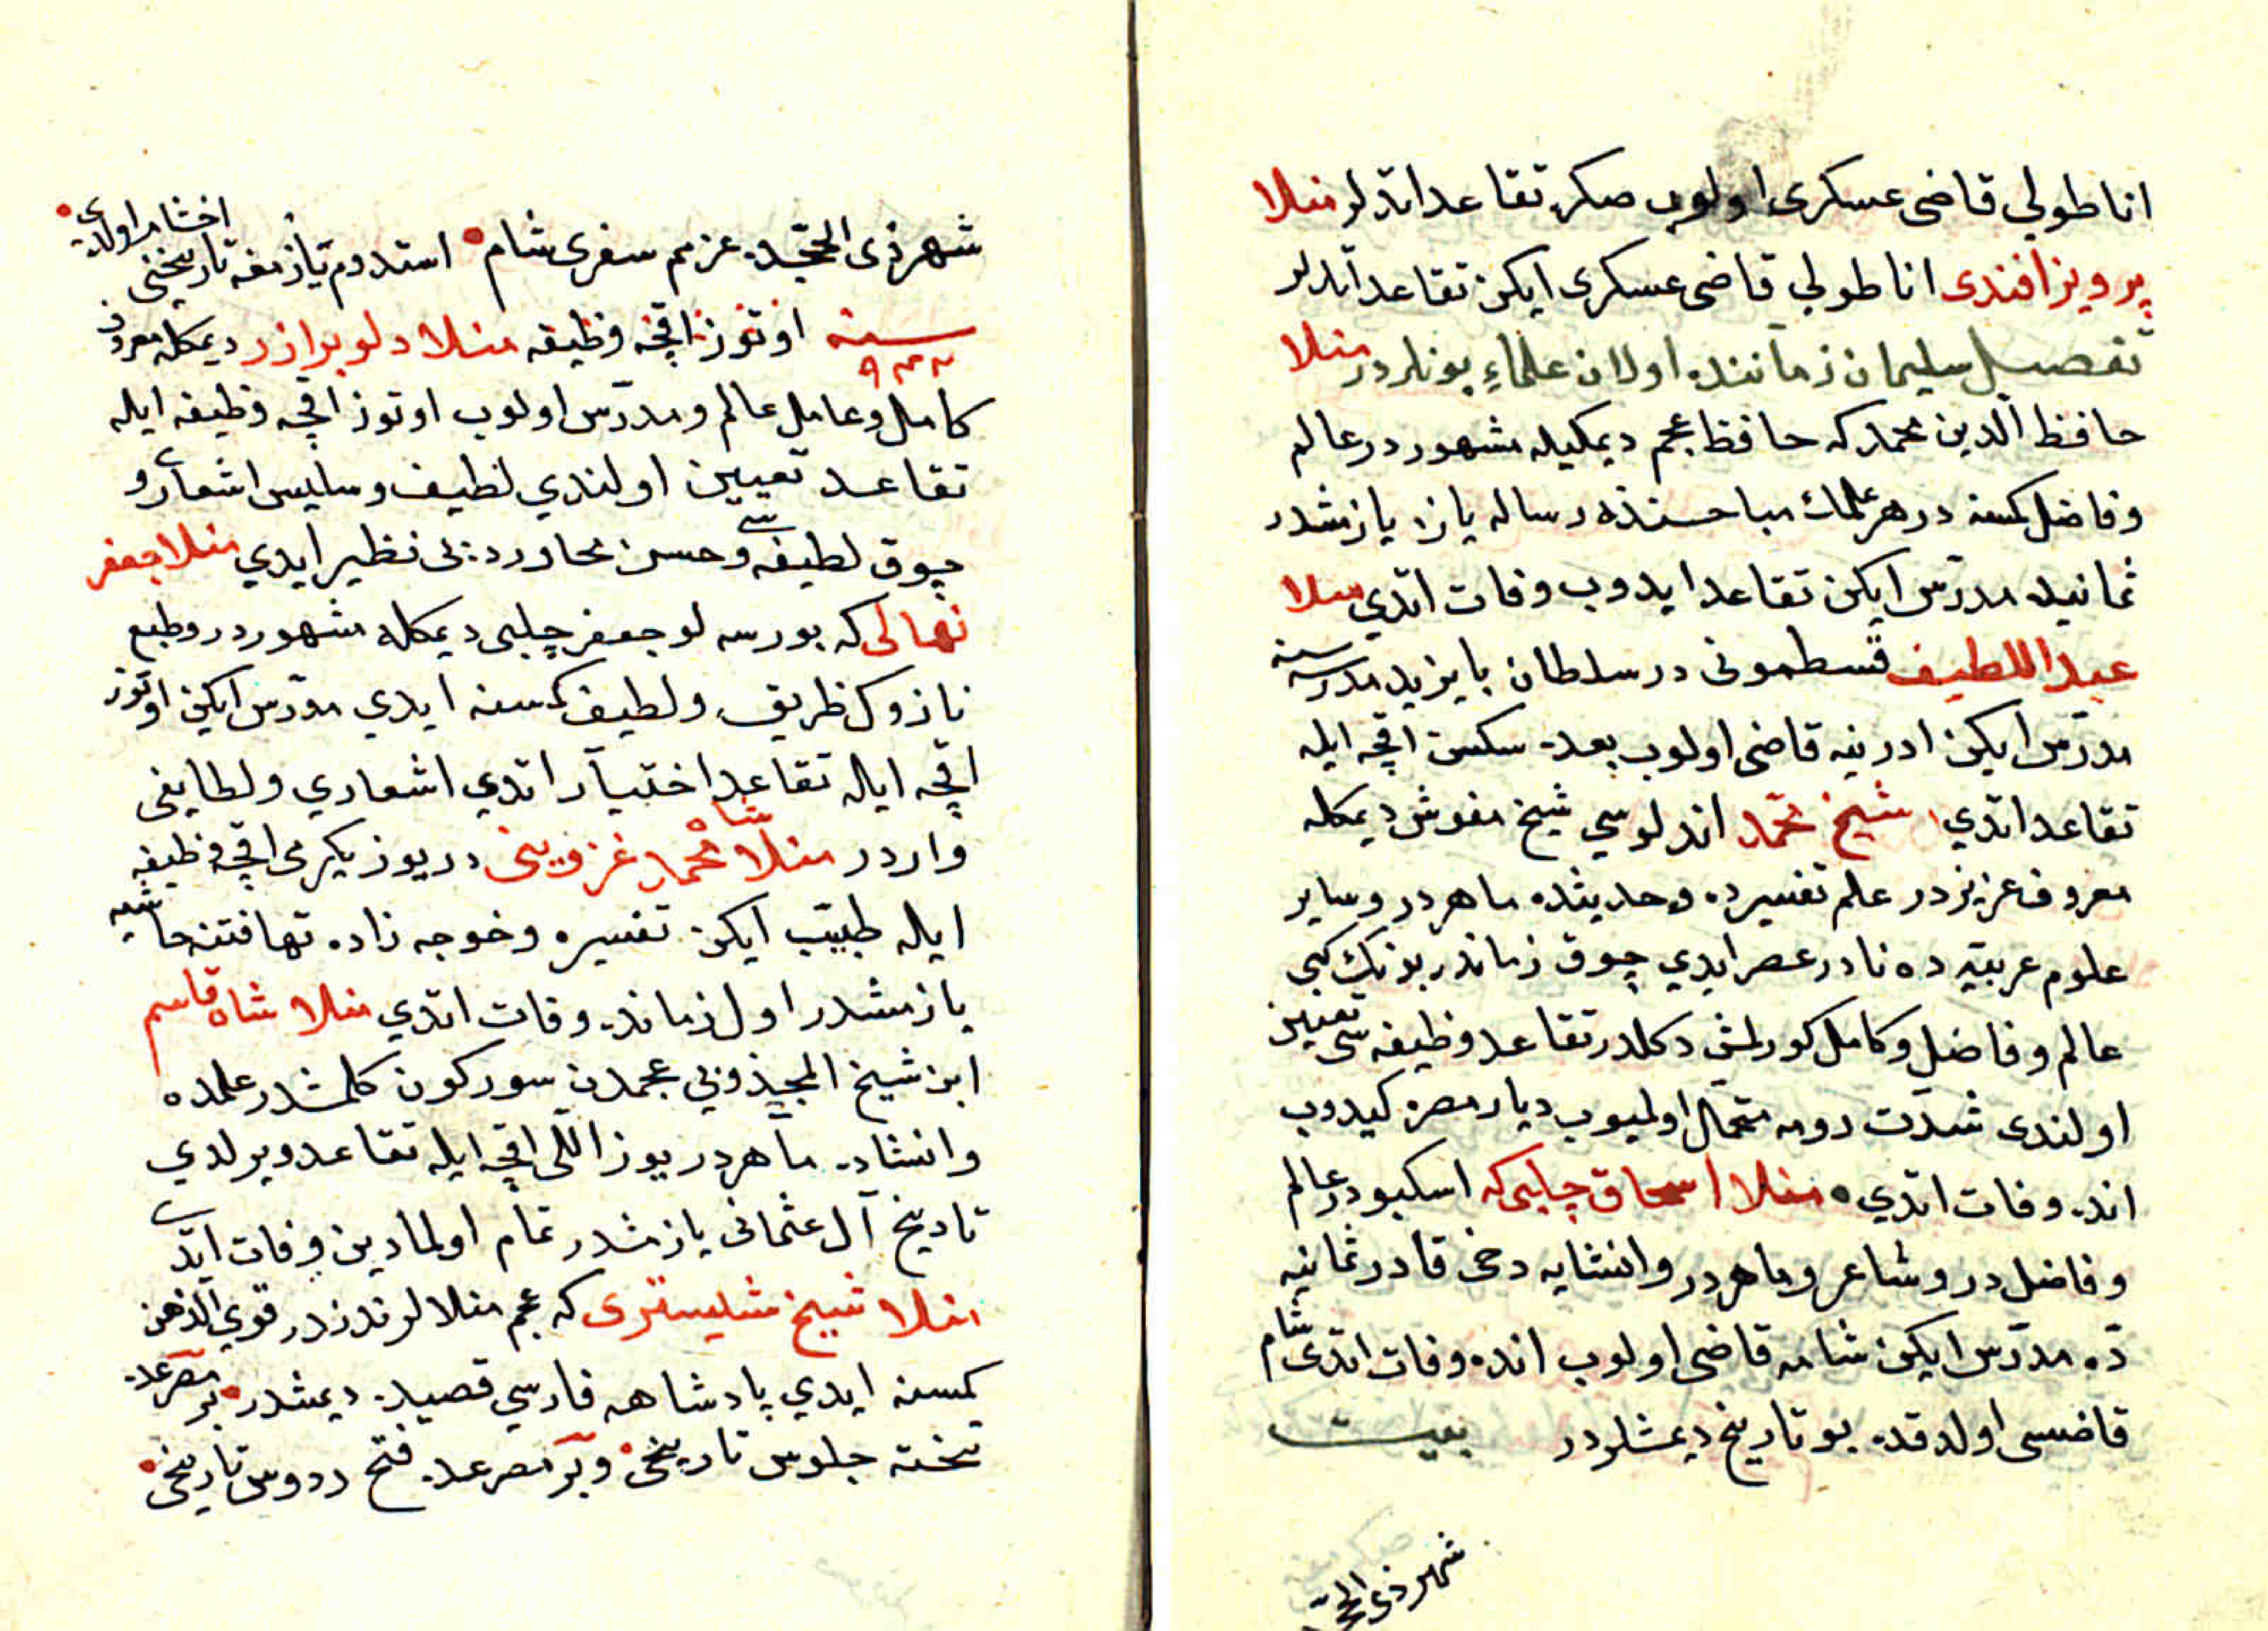 اناطولی قاضی عسکری اولوب صکره تقاعد اتدلر منلا
پرویز افندی اناطولی قاضی عسکری ایکن تقاعد اتدلر
تفصیل سلیمان زماننده اولان علماء بونلردر منلا
حافظ الدین محمد که حافظ عجم دیمکیله مشهور در عالم
وفاضل کمسنه در هر علمك مباحثنده رساله یازه یازمشدر
ثمانیه مدرس ایکن تقاعد ایدوب وفات اتدی منلا
عبد اللطیف قسطمونی در سلطان بایزید مدرسه سنه
مدرس ایکن ادرنیه قاضی اولوب بعده سکسن اقچه ایله
تقاعد اتدی شیخ محمد اندلوسی شیخ مغوش دیمکله
معروف عزیز در علم تفسیرده وحدیثده ماهر در وسایر
علوم عربیه ده نادر عصر ایدی چوق زماندر بونك کبی
عالم وفاضل وکامل کورلمش دکلدر تقاعد وظیفه سی تعیین
اولندی شدت رومه متحمل اولمیوب دیار مصره کیدوب
انده وفات اتدی منلا اسحاق چلبی که اسکوبی در عالم
وفاضل در وشاعر وماهر در وانشایه دخی قادر ثمانیه
ده مدرس ایکن شامه قاضی اولوب انده وفات اتدی شام
قاضسی اولدقده بو تاریخ دیمشلردر بیت
شهر ذی الحجه
شهر ذی الحجه ده عزم سفری شام استدوم یازمغه تاریخنی اخشام اولدی
سنه ۹۴۲ اوتوز اقچه وظیفه منلا دلو برادر دیمکله معروف
کامل وعامل عالم ومدرس اولوب اوتوز اقچه وظیفه ایله
تقاعد تعیین اولندی لطیف وسلیس اشعاری و
چوق لطیفه سی وحسن محاورده بی نظیر ایدی منلا جعفر
نهالی که بورسه لو جعفر چلبی دیمکله مشهور در وطبع
نازوك ظریف ولطیف کمسنه ایدی مدرس ایکن اوتوز
اقچه ایله تقاعد اختیار اتدی اشعاری ولطایفی
واردر منلا شاه محمد غزوینی در یوز یکرمی اقچه وظیفه
ایله طبیب ایکن تفسیره وخوجه زاده تهافتنه حاشیه
یازمشدر اول زمانده وفات اتدی منلا شاه قاسم
ابن شیخ المخذومی عجمدن سورکون کلمشدر علمده
وانشاده ماهر در یوز اللی اقچه ایله تقاعد ویرلدی
تاریخ آل عثمانی یازمشدر تمام اولمادین وفات اتدی
منلا شیخ شبستری که عجم منلالرندندر قوی الذهن
کمسنه ایدی پادشاهه فارسی قصیده دیمشدر بر مصرعده
تخته جلوس تاریخی وبر مصرعده فتح ردوس تاریخی